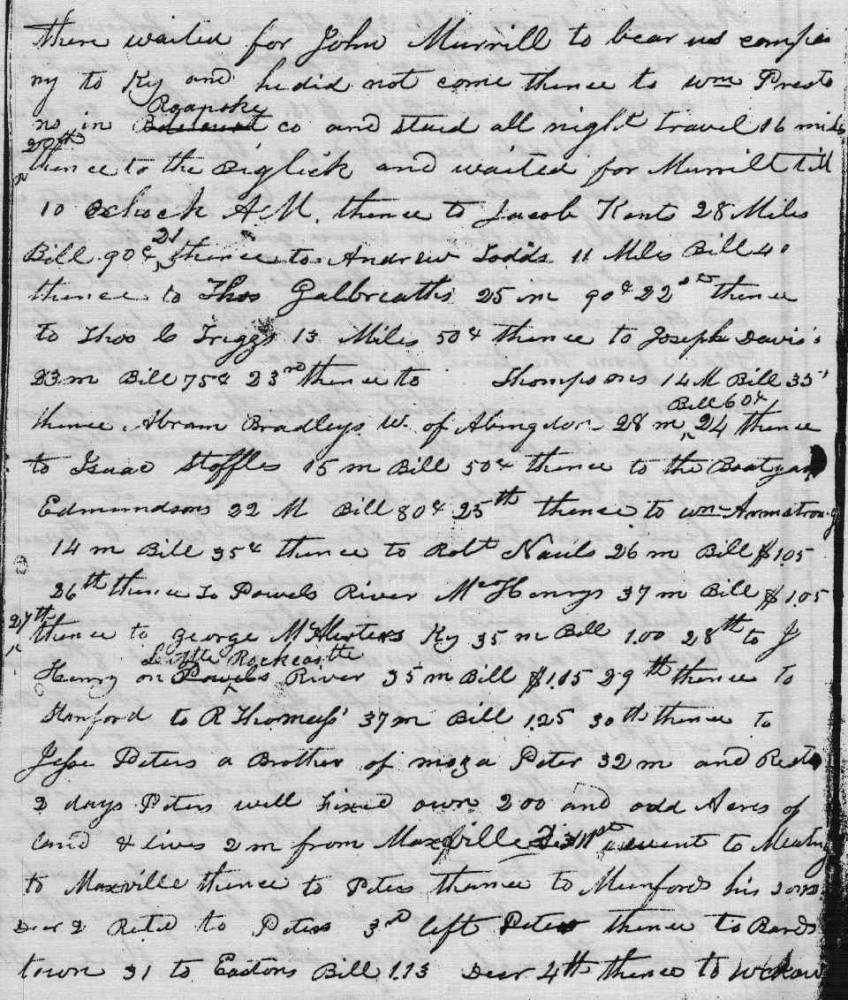 there waited for John Murrill to bear us compa
ny to Ky and he did not come thence to Wm Presto
Roanoke
ns in Botetourt co and staed all night travel 16 miles
20th
thence to the Biglick and waited for Murrill till
10 Oclock A.M. thence to Jacob Kents 28 Miles
21
Bill 90¢ thence to Andrew Todds 11 Miles Bill 40
thence to Thos Galbreaths 25 m 90¢ 22nd thence
to Thos C Triggs 13 Miles 50¢ thence to Joseph Davis's
23m Bill 75¢ 23rd thence to Thompsons 14 M Bill 35
Bill 60¢
thence Abram Bradleys W. of Abingdon 28 m 24 thence
to Isaac Stoffles 15 m Bill 50¢ thence to the Boatyard
Edmundsons 22 M Bill 80¢ 25th thence to Wm Armstrong
14 m Bill 35¢ thence to Robt Nauls 26 m Bill $1.05
26th thence to Powels River McHenrys 37 m Bill $1.05
27th
thence to George Ky 35 m Bill 1.00 28th to J
Little Rockcastle
Henry on Powels River 35 m Bill $1.15 29th thence to
Stanford to R Thomass' 37 m Bill 1.25 30th thence to
Jesse Peters a Brother of moza Peter 32 m and Rest
2 days Peters well fixed own 200 and odd Acres of
land & lives 2 m from Maxville 1st went to Meating
to Maxville thence to Peters thence to Munfords his sons
Decr 2 Retd to Peters 3rd left Peters thence to Bards
town 31 to Eastons Bill 1.13 Decr 4th thence to